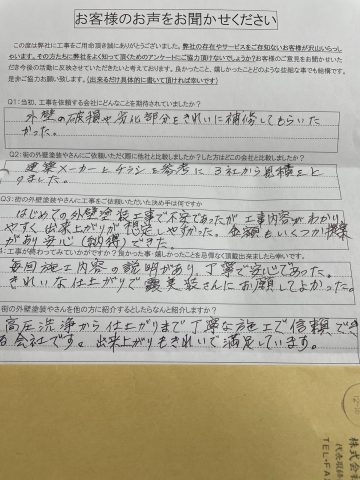 お客様のお声をお聞かせください
この度は弊社に工事をご用命頂き誠にありがとうございました。弊社の存在やサービスをご存知ないお客様が沢山いらっしゃいます。その方たちに弊社をよく知って頂くためのアンケートにご協力頂けないでしょうか?お客様のご意見をお聞かせいただき今後の活動に反映させていただきたいと考えております。良かったこと、嬉しかったことどのような些細な事でも結構です。是非ご協力お願い致します。(出来るだけ具体的に書いて頂ければ幸いです)
Q1:当初、工事を依頼する会社にどんなことを期待されていましたか?
外壁の破損や劣化部分をきれいに補修してもらいた
かった。
Q2:街の外壁塗装やさんにご依頼いただく際に他社と比較しましたか?した方はどこの会社と比較しましたか?
建築メーカーとチラシを参考に3社から見積をと
りました。
Q3:街の外壁塗装やさんに工事をご依頼いただいた決め手は何ですか
はじめての外壁塗装工事で不安であったが工事内容がわかり
やすく出来上がりが想定しやすかった。金額もいくつか提案
があり安心(納得)できた。
:工事が終わってみていかがですか?良かった事・嬉しかったことを忌憚なく頂戴出来ましたら幸いです。
毎回施工内容の説明があり、丁寧で安心であった。
きれいな仕上がりで塗装さんにお願してよかった。
街の外壁塗装やさんを他の方に紹介するとしたらなんと紹介しますか?
高圧洗浄から仕上がりまで丁寧な施工で信頼でき
る会社です。出来上がりもきれいで満足しています。
株式会
代表取締
TEL・FA